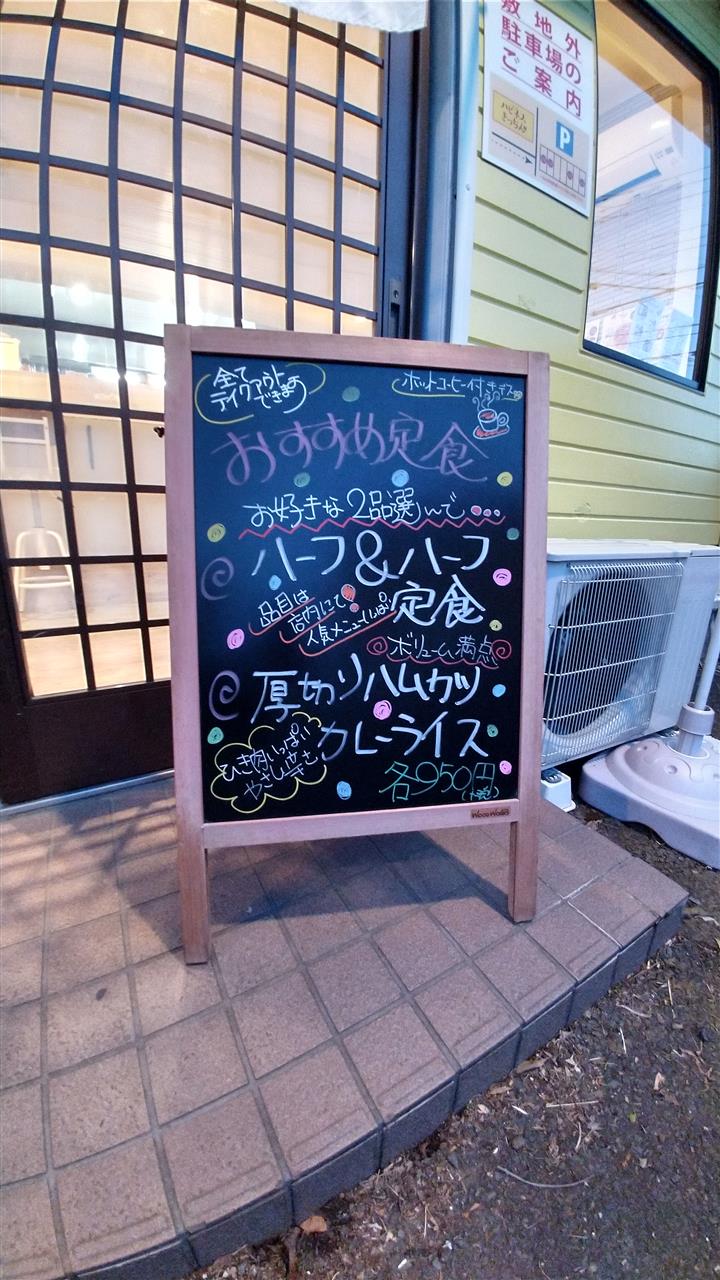 敷地外
駐車場の
ご案内
P
全て
テイクアウト
できます
ホットコーヒー付きデス
おすすめ定食
お好きな2品選んで…
ハーフ&ハーフ
定食
品目は
店内にて
人気メニューいっぱい
ボリューム満点
厚切りハムカツ
カレーライス
ひき肉いっぱい
やさしい辛さ
各950円